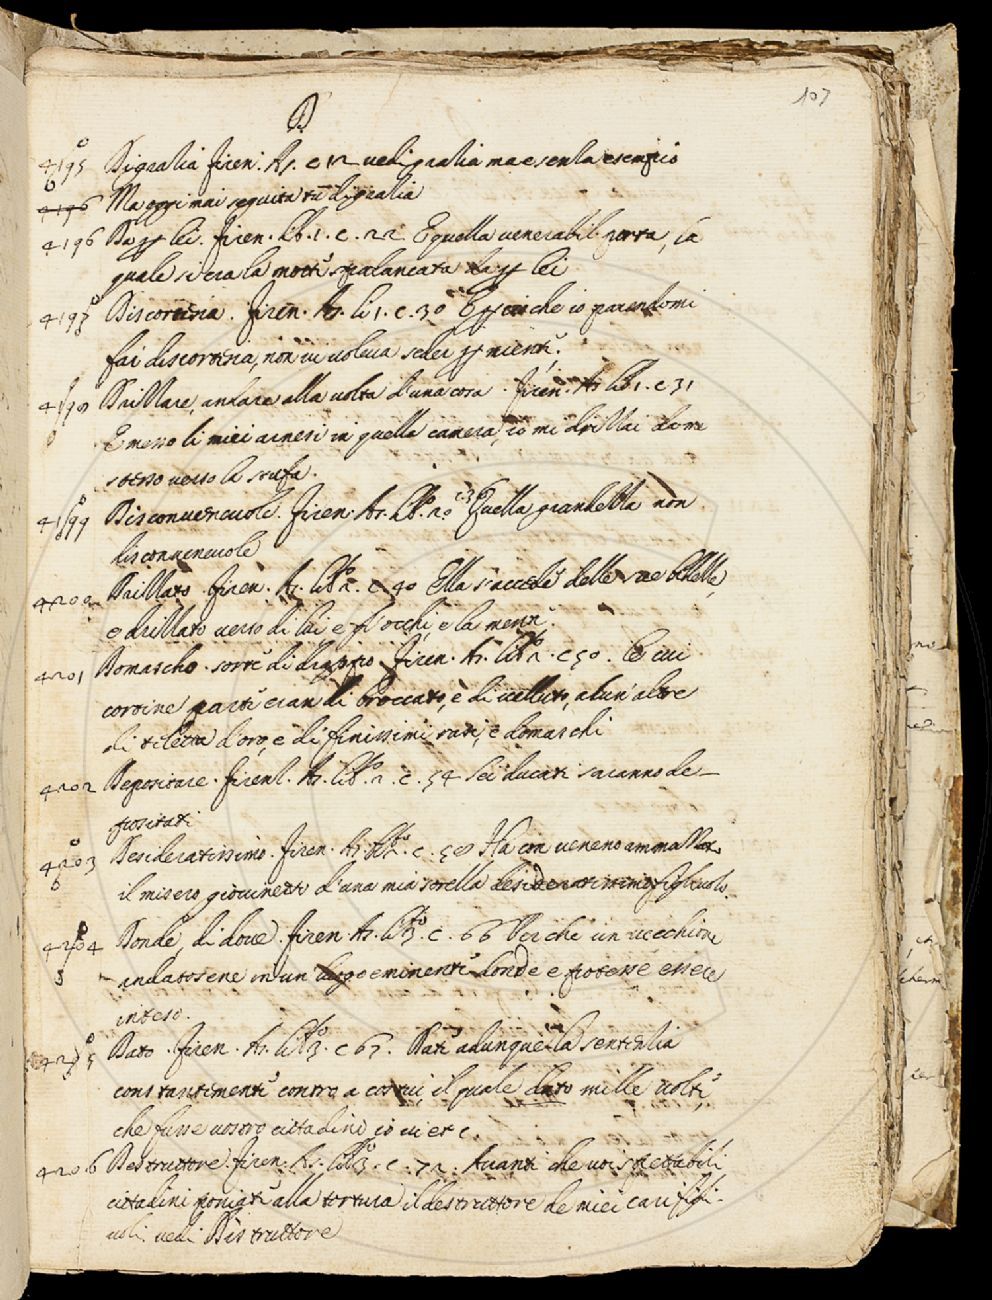 107
D
4195 Digratia firen. As. c 12 vedi gratia ma e senza esempio
4196 Ma oggi mai seguita tu di gratia
4196 Da per lei. firen. lib. 1. c. 22 E quella venerabil porta, la
quale si era la notte spalancata da per lei
4197 Discortina. firen. As. li 1. c. 30 E perciò che io parendomi
fai discortina, non vi voleva seder per niente.
4198 Drillare, andare alla volta d'una cosa. firen. As. lib. 1. c 31
E messo li miei arnesi in quella camera, io mi drillai da me
stesso verso la stufa.
4199 Disconvenevole. firen. As. lib. 2. c 3 Quella grandezza non
disconvenevole
4200 Drillato firen. As. lib. 2. c 40 Ella s'accese delle sue bellezze,
e drillato verso di lui e gl'occhi, e la mente.
4201 Domascho. sorte di drappo firen. As. lib. 2. c 50. Le cui
cortine parte eran di broccato, e di velluto, alcun'altre
di teletta d'oro, e di finissimi rasi, e domaschi
4202 Depositare. firenz. As. lib. 2. c. 54 sei ducati saranno de-
positati
4203 Desideratissimo. firen. As. lib. 2. c. 58 Ha con veneno ammazzato
il misero giovinetto d'una mia sorella desideratissimo figliuolo.
4204 Donde, di dove. firen As. lib. 3. c. 66 Perche un vecchione
andatosene in un luogo eminente donde e potesse essere
inteso.
4205 Dato. firen. As. lib. 3. c 67. Date adunque la sententia
constantemente contro a costui, il quale dato mille volte,
che fusse vostro cittadino io vi et c
4206 Destruttore. firen. As. lib. 3. c. 72. Avanti che voi spettabili
cittadini poniate alla tortura il destruttore de miei cari figli-
uoli. vedi Distruttore